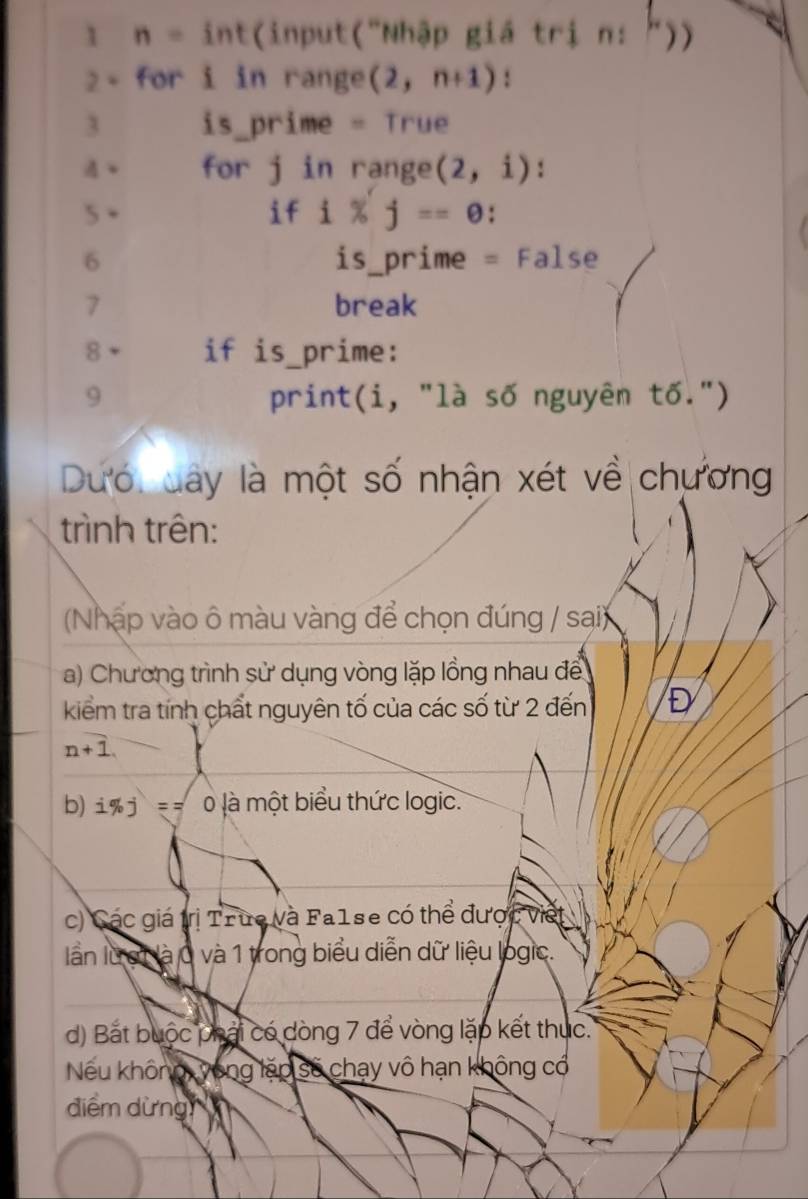 1 n = int(input("Nhập giá trị n: "))
2 for i in range(2, n+1):
3 is_prime = True
4 for j in range(2, i):
5 if i % j == 0:
6 is_prime = False
7 break
8 if is_prime:
9 print(i, "là số nguyên tố.")
Dưới đây là một số nhận xét về chương
trình trên:
(Nhấp vào ô màu vàng để chọn đúng / sai)
a) Chương trình sử dụng vòng lặp lồng nhau để
kiểm tra tính chất nguyên tố của các số từ 2 đến
n+1.
Đ
b) i%j == 0 là một biểu thức logic.
c) Các giá trị True và False có thể được viết
lần lượt là 0 và 1 trong biểu diễn dữ liệu logic.
d) Bắt buộc phải có dòng 7 để vòng lặp kết thúc.
Nếu không, vòng lặp sẽ chạy vô hạn không có
điểm dừng.